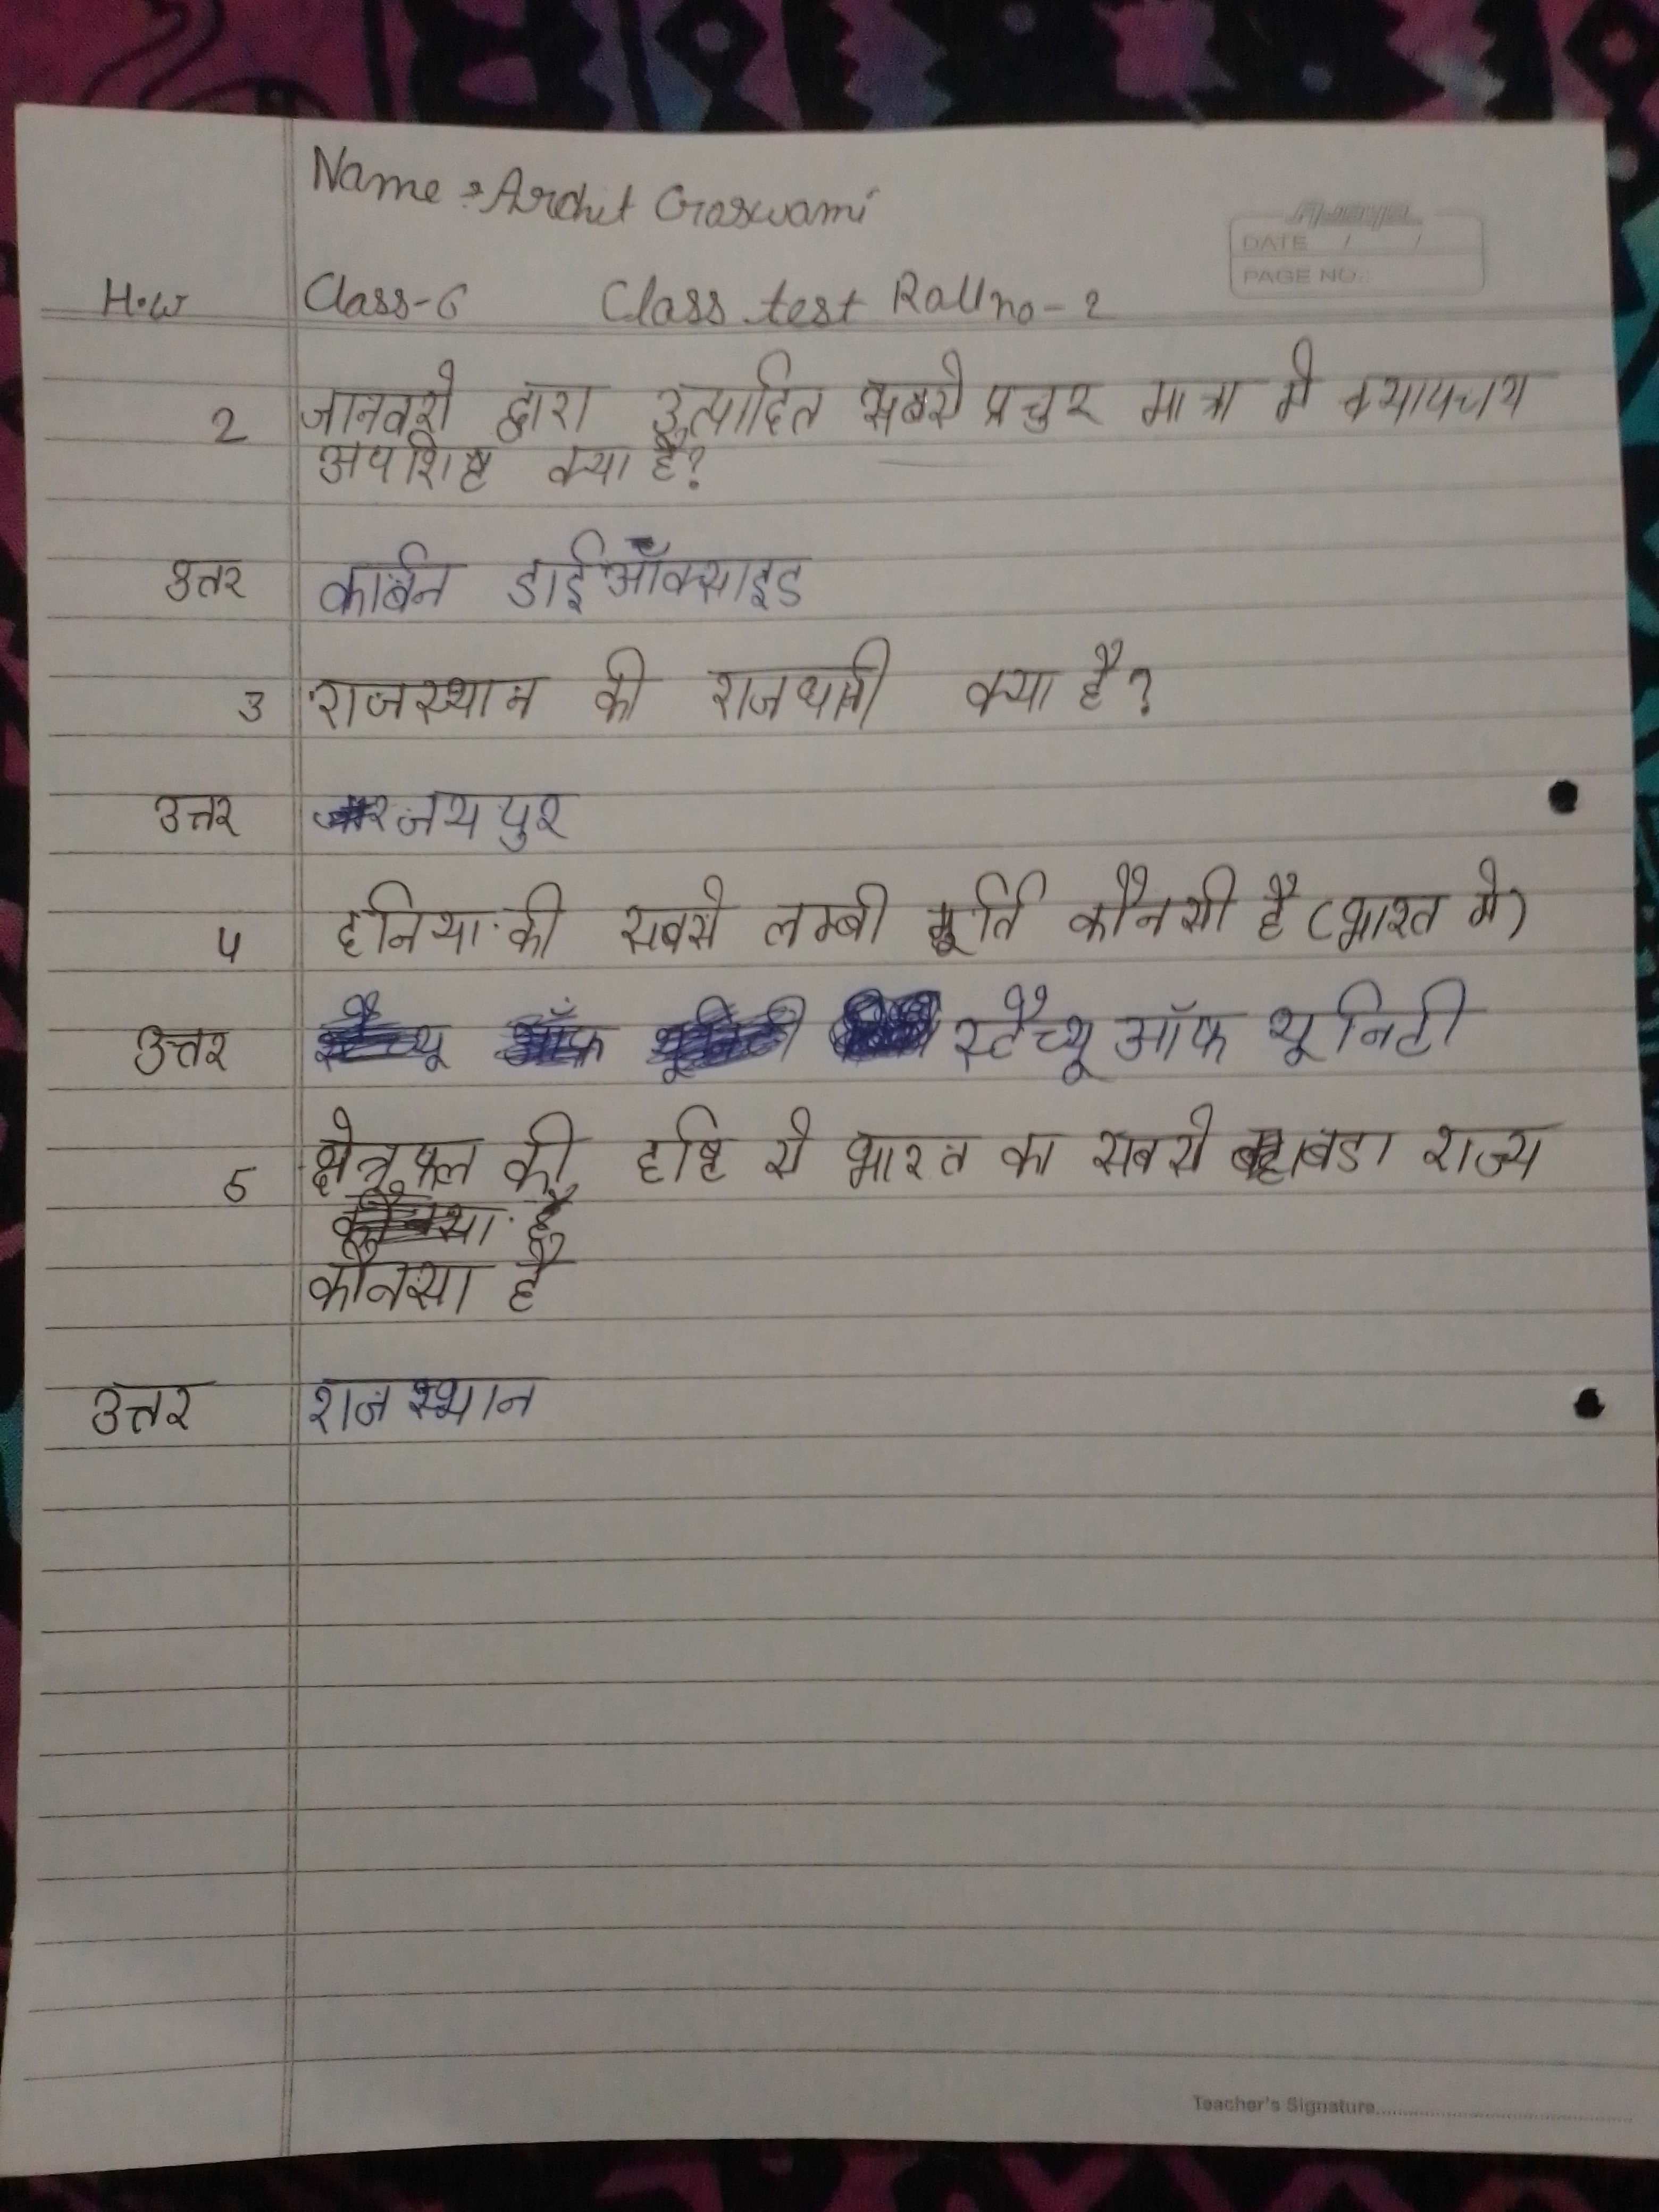 Name : Archit Goswami
DATE / /
PAGE NO.:
H.W Class-6 Class test Roll no - 2
2 जानवरो द्वारा उत्पादित सबसे प्रचुर मात्रा मे क्यापचय
अपशिष्ट क्या है?
उतर कार्बन डाईऑक्साइड
3 राजस्थान की राजधानी क्या है?
उत्तर जयपुर
4 दुनिया की सबसे लम्बी मूर्ति कौनसी है (भारत मे)
उत्तर स्टैच्यू ऑफ यूनिटी
5 क्षेत्रफल की दृष्टि से भारत का सबसे बडा राज्य
कौनसा है
उत्तर राजस्थान
Teacher's Signature